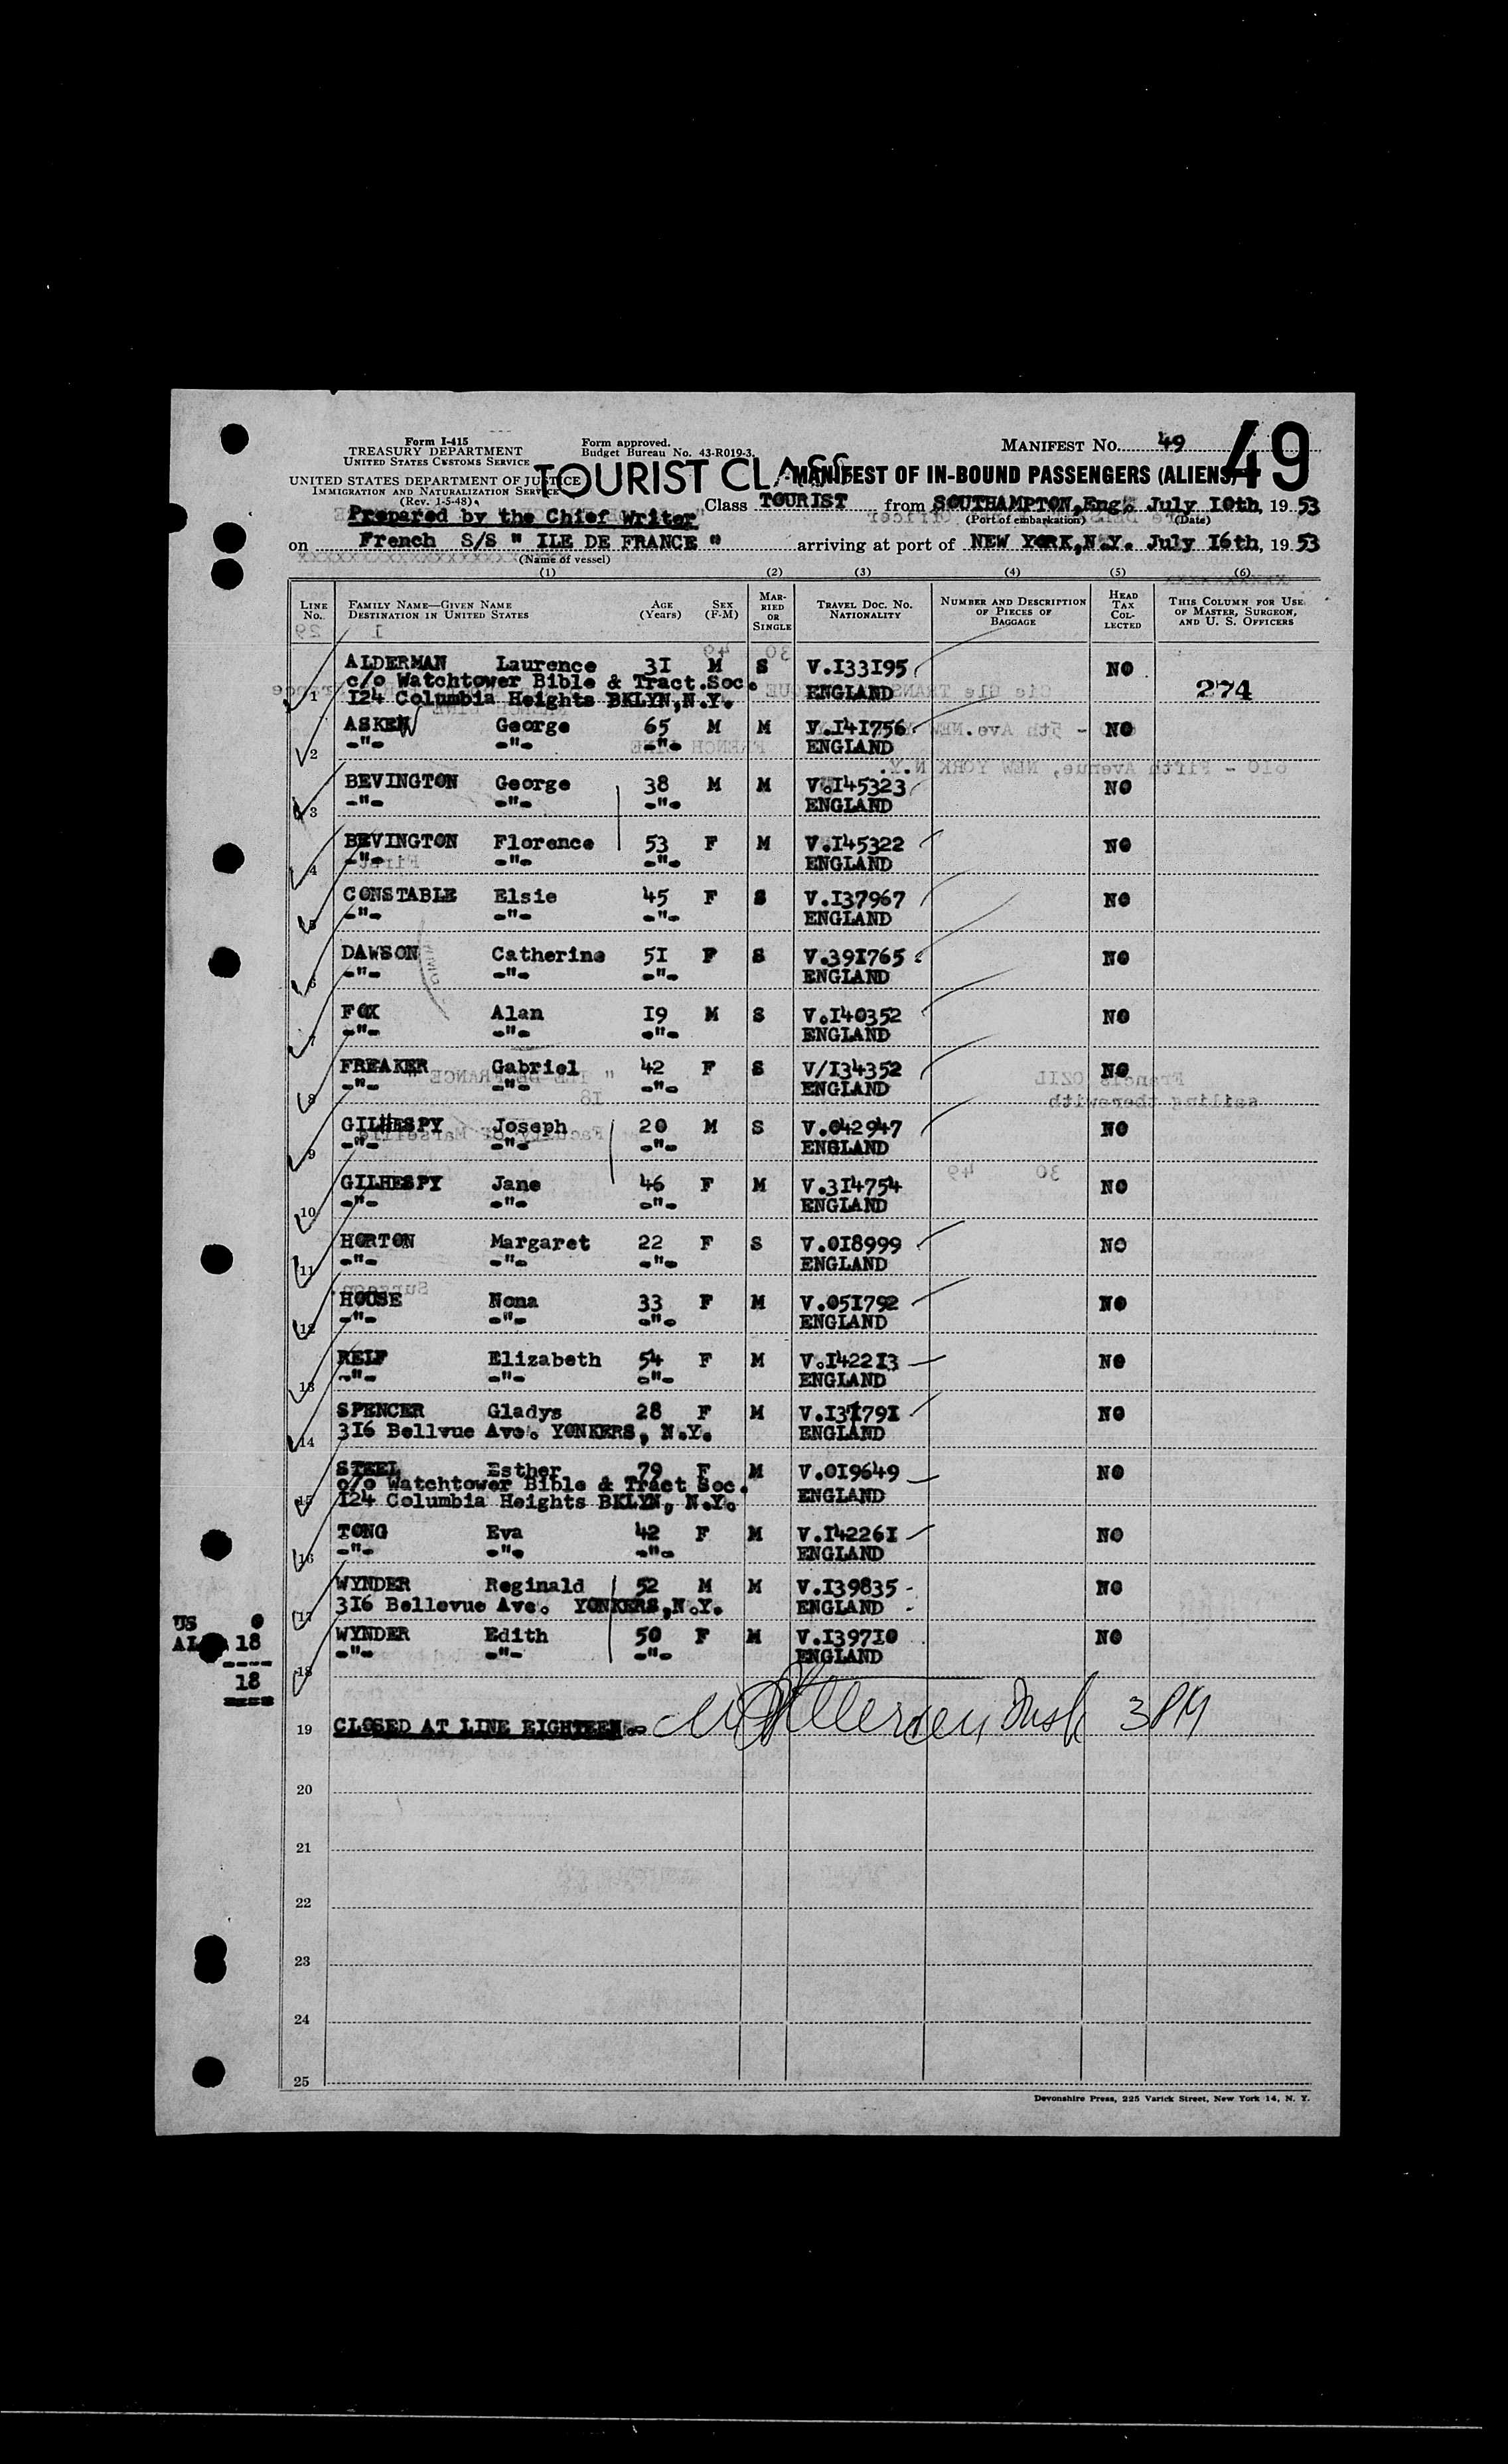 Form I-415
TREASURY DEPARTMENT
UNITED STATES CUSTOMS SERVICE
Form approved.
Budget Bureau No. 43-R019-3.
MANIFEST No. 49
49
UNITED STATES DEPARTMENT OF JUSTICE
IMMIGRATION AND NATURALIZATION SERVICE
(Rev. 1-5-48)
TOURIST CLASS
MANIFEST OF IN-BOUND PASSENGERS (ALIENS)
Class TOURIST from SOUTHAMPTON, Eng. July 10th, 19 53
(Port of embarkation) (Date)
Prepared by the Chief Writer
on French S/S " ILE DE FRANCE " arriving at port of NEW YORK, N.Y. July 16th, 19 53
(Name of vessel)
(1) (2) (3) (4) (5) (6)
LINE No. FAMILY NAME—GIVEN NAME DESTINATION IN UNITED STATES AGE (Years) SEX (F-M) MARRIED OR SINGLE TRAVEL DOC. NO. NATIONALITY NUMBER AND DESCRIPTION OF PIECES OF BAGGAGE HEAD TAX COLLECTED THIS COLUMN FOR USE OF MASTER, SURGEON, AND U. S. OFFICERS
1 ALDERMAN Laurence 31 M S V.I33I95 NO
c/o Watchtower Bible & Tract.Soc. ENGLAND 274
I24 Columbia Heights BKLYN,N.Y.
2 ASKEW George 65 M M V.I4I756 NO
-"- -"- -"- ENGLAND
3 BEVINGTON George 38 M M V.I45323 NO
-"- -"- -"- ENGLAND
4 BEVINGTON Florence 53 F M V.I45322 NO
-"- -"- -"- ENGLAND
5 CONSTABLE Elsie 45 F S V.I37967 NO
-"- -"- -"- ENGLAND
6 DAWSON Catherine 5I F S V.39I765 NO
-"- -"- -"- ENGLAND
7 FOX Alan I9 M S V.I40352 NO
-"- -"- -"- ENGLAND
8 FREAKER Gabriel 42 F S V/I34352 NO
-"- -"- -"- ENGLAND
9 GILHESPY Joseph 20 M S V.042947 NO
-"- -"- -"- ENGLAND
10 GILHESPY Jane 46 F M V.3I4754 NO
-"- -"- -"- ENGLAND
11 HORTON Margaret 22 F S V.0I8999 NO
-"- -"- -"- ENGLAND
12 HOUSE Nona 33 F M V.05I792 NO
-"- -"- -"- ENGLAND
13 RELF Elizabeth 54 F M V.I422I3 NO
-"- -"- -"- ENGLAND
14 SPENCER Gladys 28 F M V.I3I79I NO
3I6 Bellvue Ave. YONKERS, N.Y. ENGLAND
15 STEEL Esther 79 F M V.0I9649 NO
c/o Watchtower Bible & Tract Soc. ENGLAND
I24 Columbia Heights BKLYN, N.Y.
16 TONG Eva 42 F M V.I4226I NO
-"- -"- -"- ENGLAND
17 WYNDER Reginald 52 M M V.I39835 NO
3I6 Bellevue Ave. YONKERS,N.Y. ENGLAND
18 WYNDER Edith 50 F M V.I397I0 NO
-"- -"- -"- ENGLAND
US 0
AL 18
18
19 CLOSED AT LINE EIGHTEEN. 3 PM
20
21
22
23
24
25
Devonshire Press, 225 Varick Street, New York 14, N. Y.